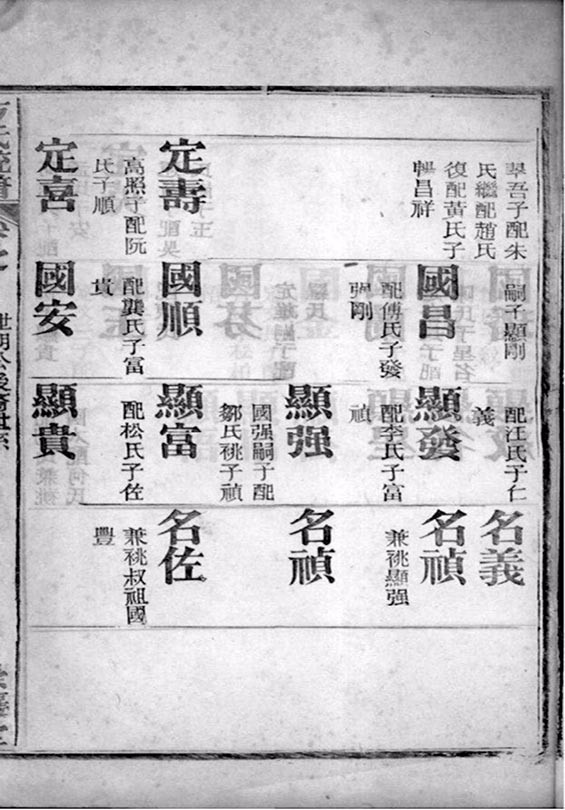 吾子配朱
氏繼配趙氏
復配黃氏子
昌祥
定壽
高照子配阮
氏子順
定喜
嗣子顯剛
國昌
配傅氏子發
剛
國順
配龔氏子富
貴
國安
配汪氏子仁
義
顯發
配李氏子富
禎
顯强
國强嗣子配
鄒氏祧子禎
顯富
配松氏子佐
顯貴
名義
名禎
兼祧顯强
名禎
名佐
兼祧叔祖國
豐
世明公後裔世系